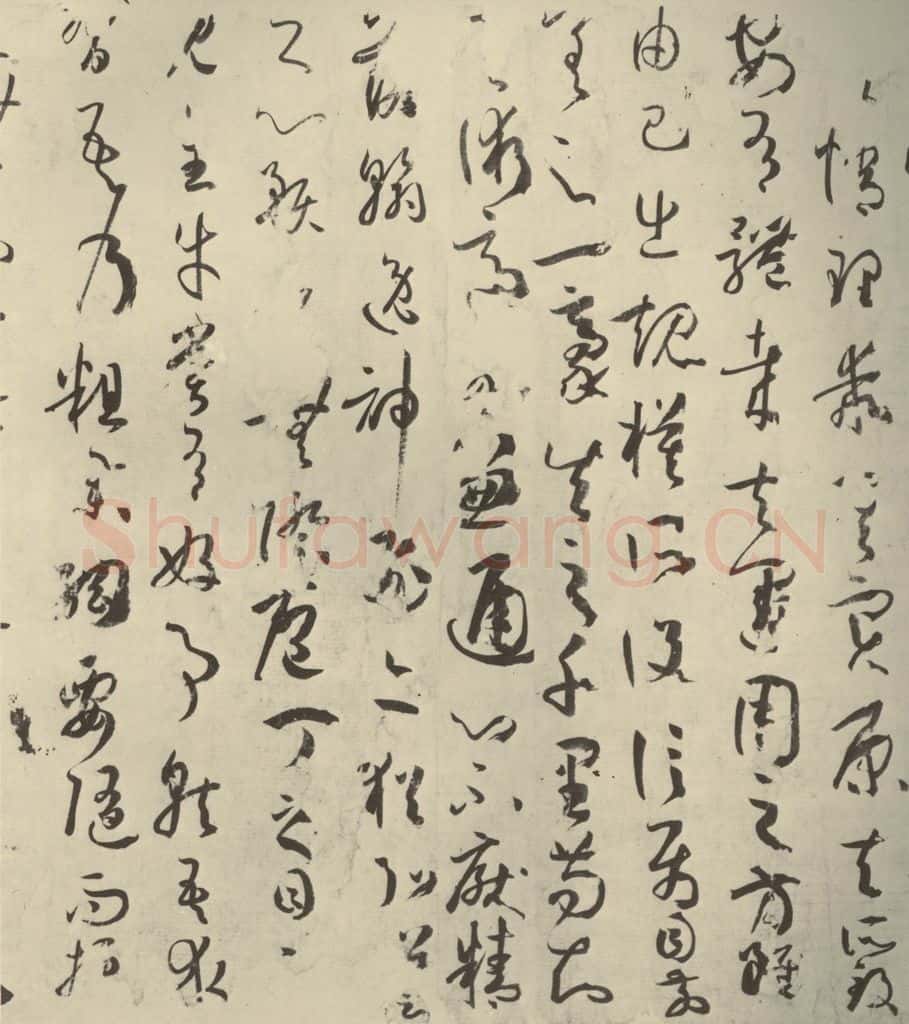 情理乖其實原夫所致
安有體哉夫運用之方雖
由己出規模所設信屬目前
差之一豪失之千里苟知
其術適可兼通心不厭精
落翰逸神飛亦猶弘羊
之心預乎無際庖丁之目不
見全牛嘗有好事就吾求
習吾乃粗舉綱要隨而授
Shufawang.CN